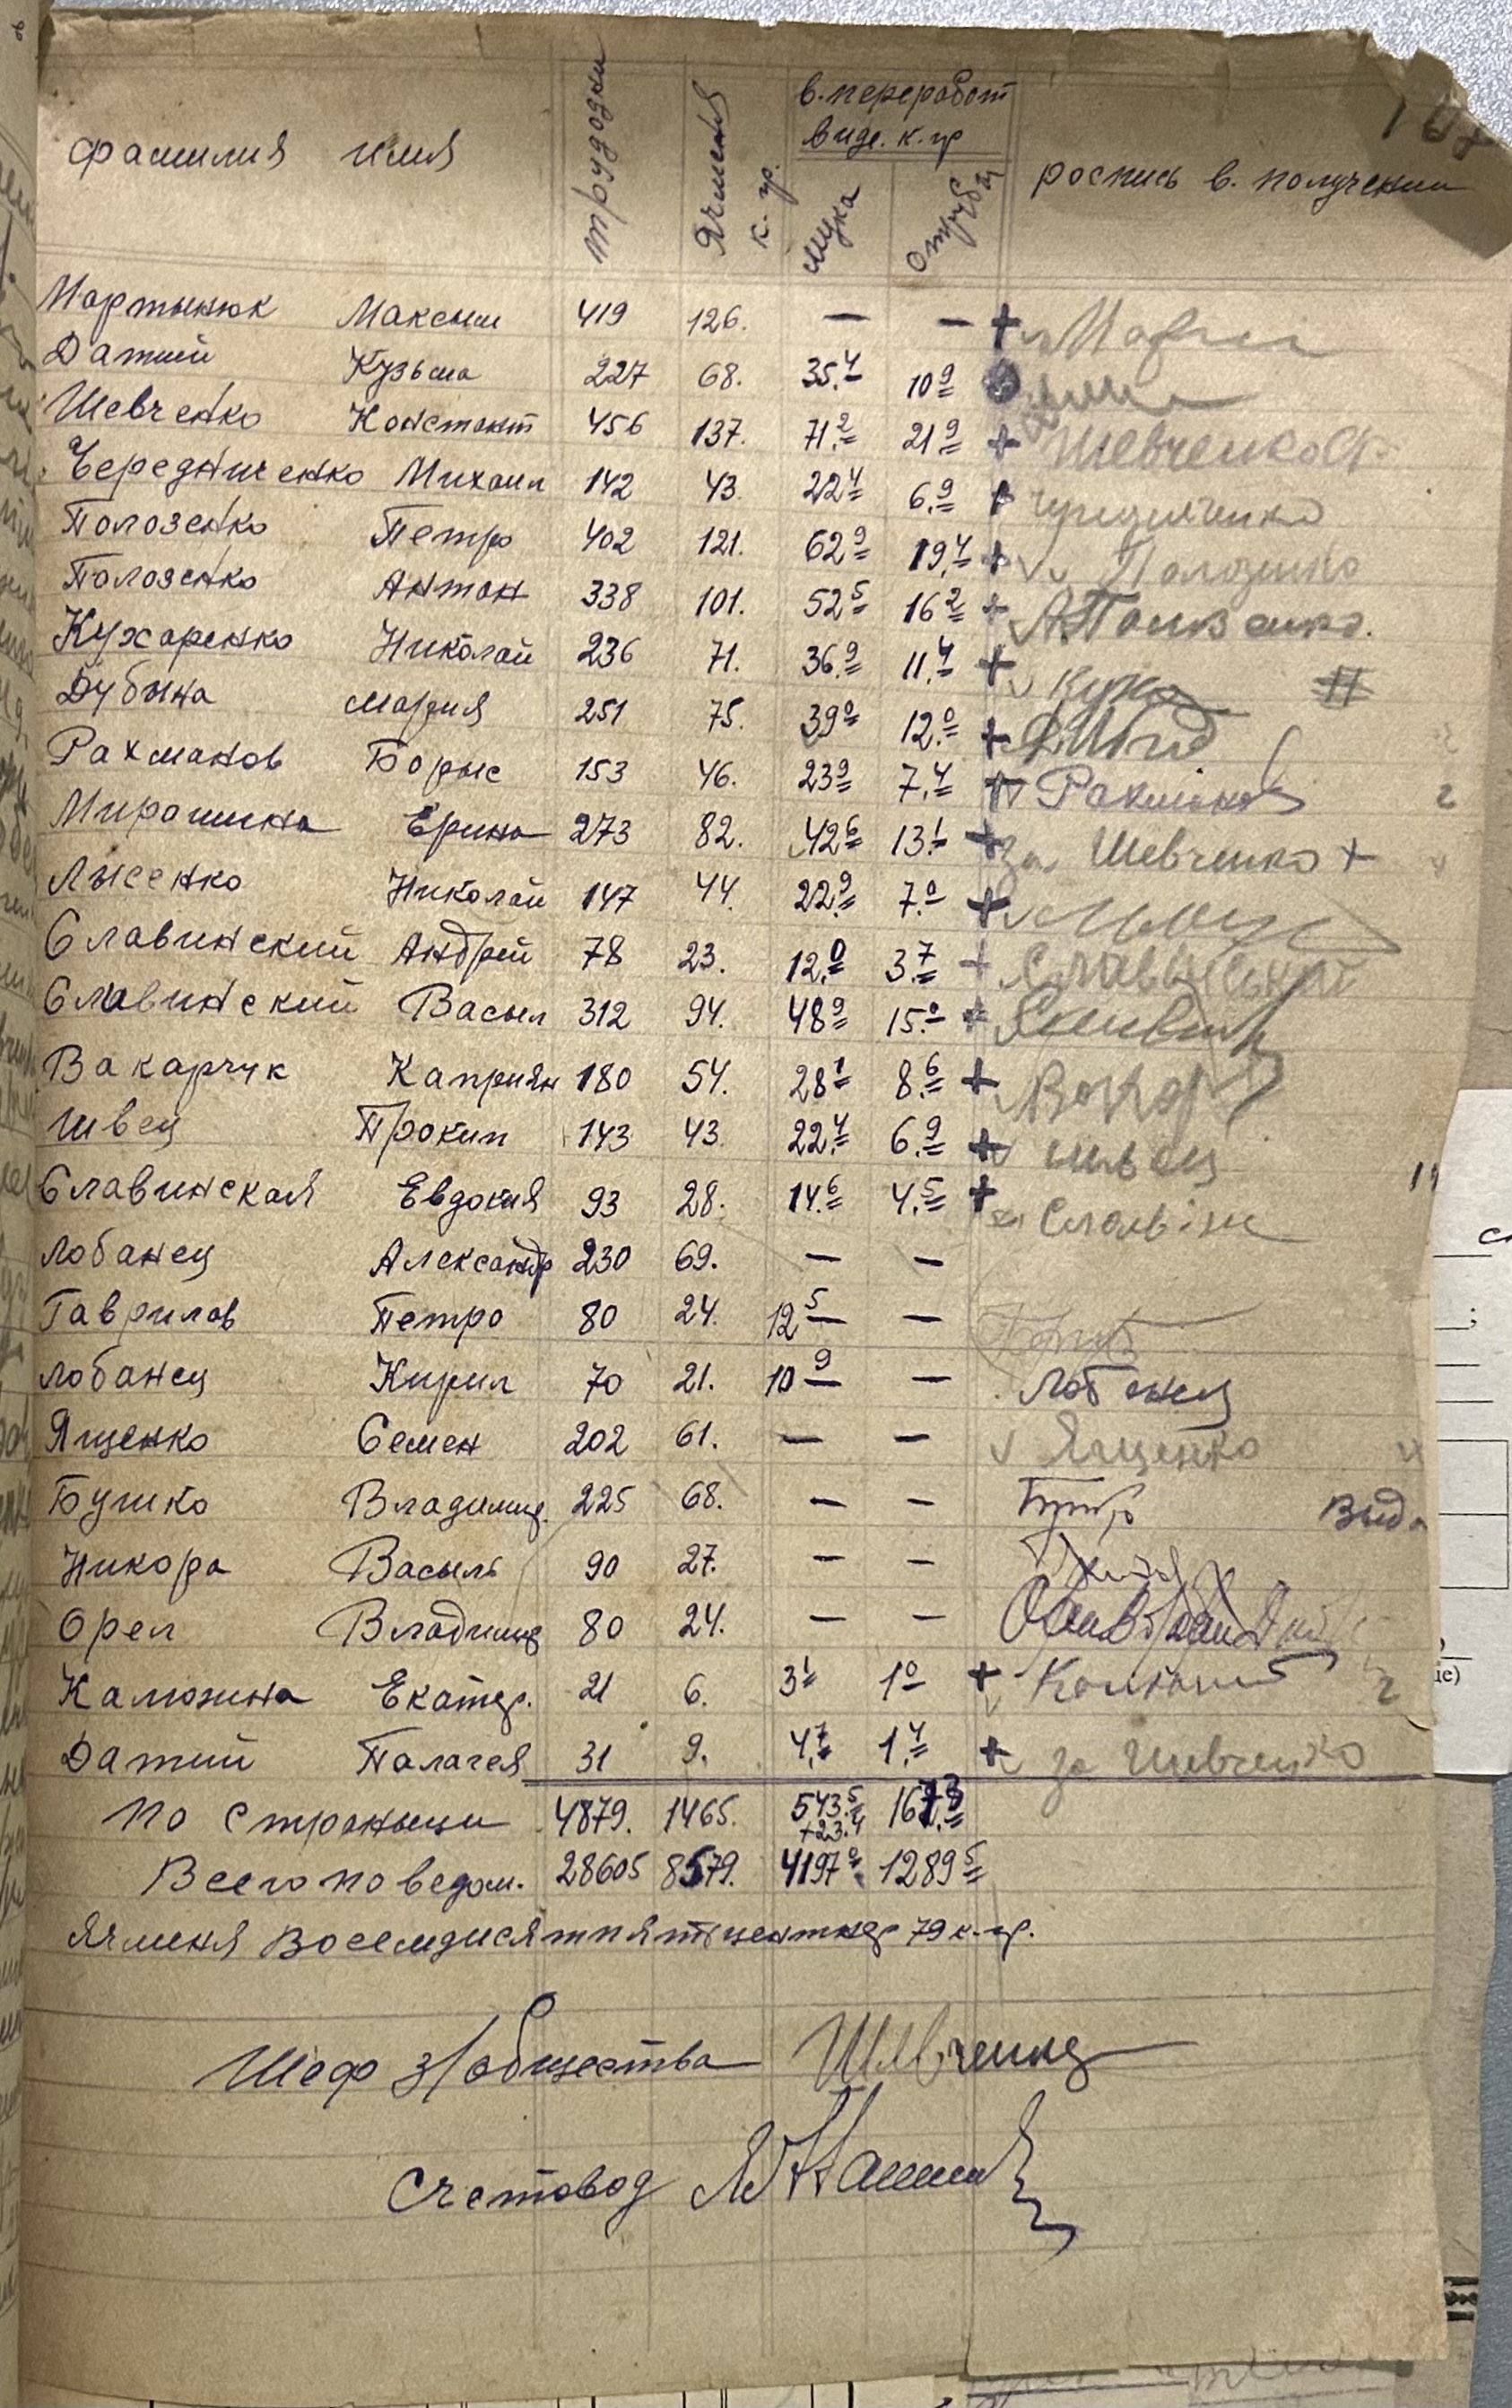 фамилия имя трудодни Ячменя к. гр. в. переработ виде. к. гр мука отруби роспись в. получении
Мартынюк Максим 419 126. — — +
Датий Кузьма 227 68. 35.4 10 9
Шевченко Констант 456 137. 71.2 21 9 + Шевченко
Чередниченко Михаил 142 43 22 4 6.9 +
Полозенко Петро 402 121. 62 9 19.4 + v Полозенко
Полозенко Антон 338 101. 52 5 16 2 +
Кухаренко Николай 236 71. 36.9 11.4 + v
Дубына Мария 251 75. 39 0 12.0 +
Рахманов Борыс 153 46. 23 9 7.4 + v Рахманов
Мирошина Ерина 273 82. 42 6 13.1 + за Шевченко +
Лысенко Николай 147 44. 22.9 7.0 + v
Славинский Андрей 78 23. 12.0 3.7 +
Славинский Васыл 312 94. 48 9 15.0 +
Вакарчук Каприян 180 54. 28 1 8.6 +
Швец Прокип 143 43 22.4 6.9 + v швец
Славинская Евдокия 93 28. 14.6 4.5 +
Лобанец Александр 230 69. — —
Гаврилов Петро 80 24. 12 5 —
Лобанец Кирил 70 21. 10 9 — Лобанец
Ященко Семен 202 61. — — v Ященко
Бушко Владимир. 225 68. — —
Никора Васыль 90 27. — —
Орел Владимир 80 24. — —
Калюжина Екатер. 21 6. 3 1 1 0 + v
Датий Палагея 31 9. 4.7 1.4 + v за Шевченко
По страныци 4879. 1465. 543.5 167.3
+23.4
Всего по ведом. 28605 8579. 4197 0 1289 5
Ячменя Восемдисят пять центнер 79 к. гр.
Шеф з/общества Шевченко
Счетовод